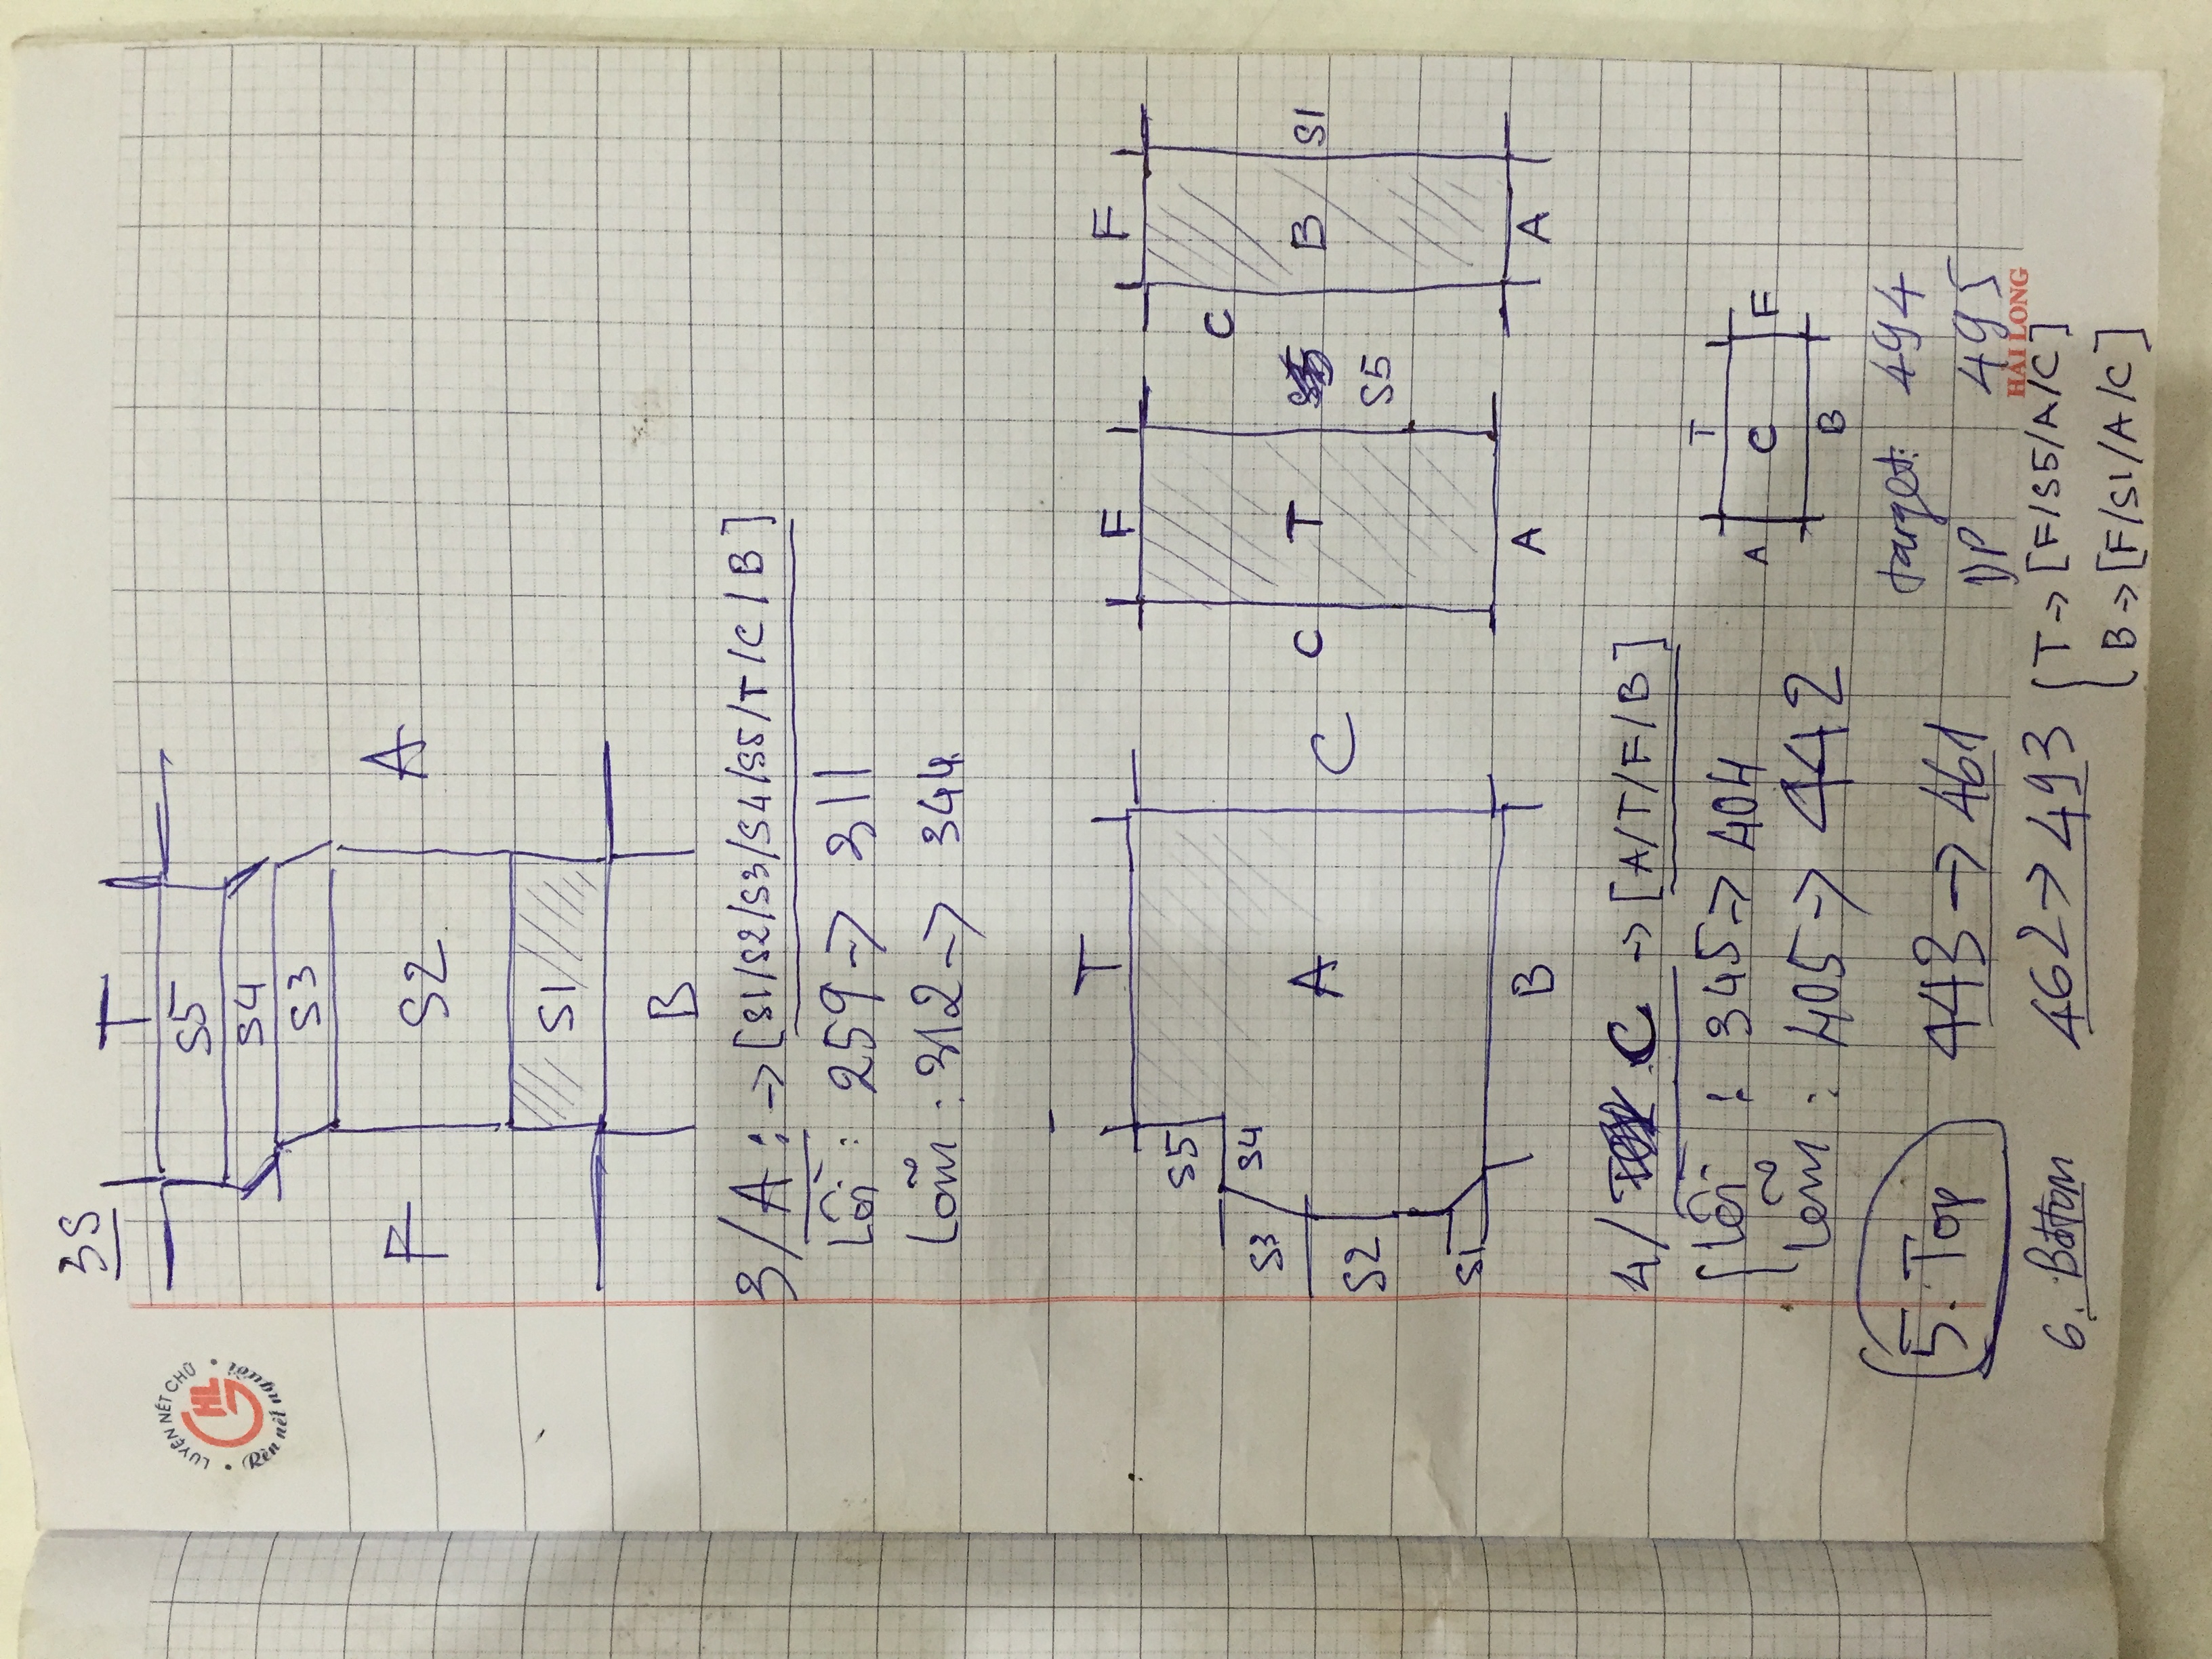 3S
LUYỆN NÉT CHỮ
GHL
Rèn nét người
T
S5
S4
S3
F
S2
A
S1
B
3/ A: → [S1/S2/S3/S4/S5/T/C/B]
Lồi: 259 → 311
Lõm: 312 → 344
T
S5
S3
S4
A
S2
S1
C
B
F
C
T
S5
A
F
C
B
S1
A
4/ C → [A/T/F/B]
Lồi: 345 → 404
Lõm: 405 → 442
T
A
C
F
B
5. Top 443 → 461
target: 494
DP 495
HẢI LONG
6. Bottom 462 → 493
T → [F/S5/A/C]
B → [F/S1/A/C]